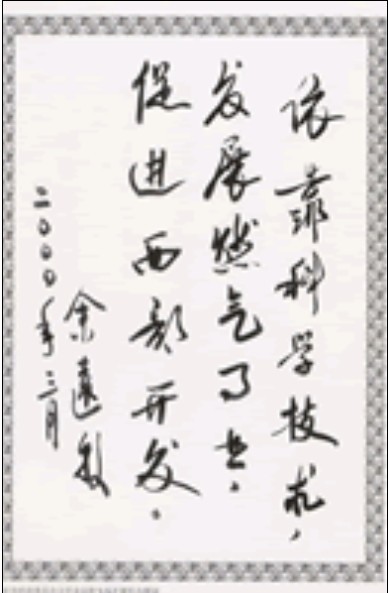 依靠科学技术，
发展燃气事业，
促进西部开发。
余远
二〇〇〇年三月